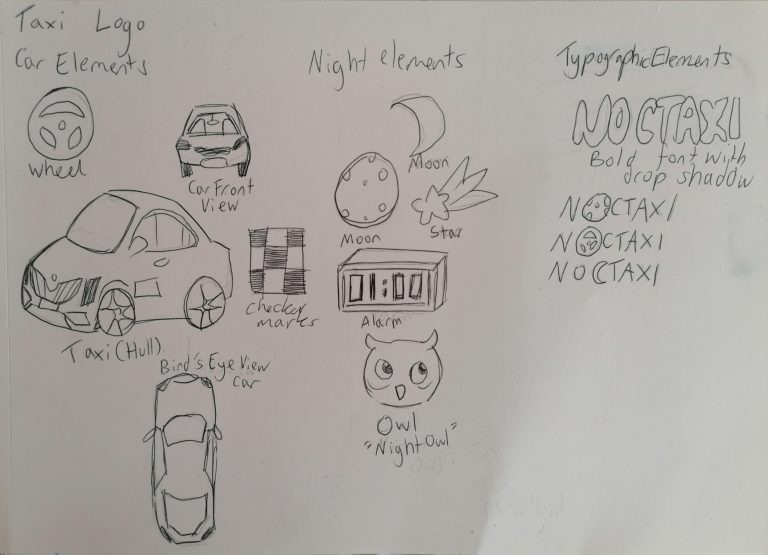 Taxi Logo
Car Elements
Wheel
Car Front
View
Taxi (Hull)
Checker
marks
Bird's Eye View
Car
Night elements
Moon
Moon
Star
01:00
Alarm
Owl
"Night Owl"
Typographic Elements
NOCTAXI
Bold font with
drop shadow
NOCTAXI
NOCTAXI
NOCTAXI